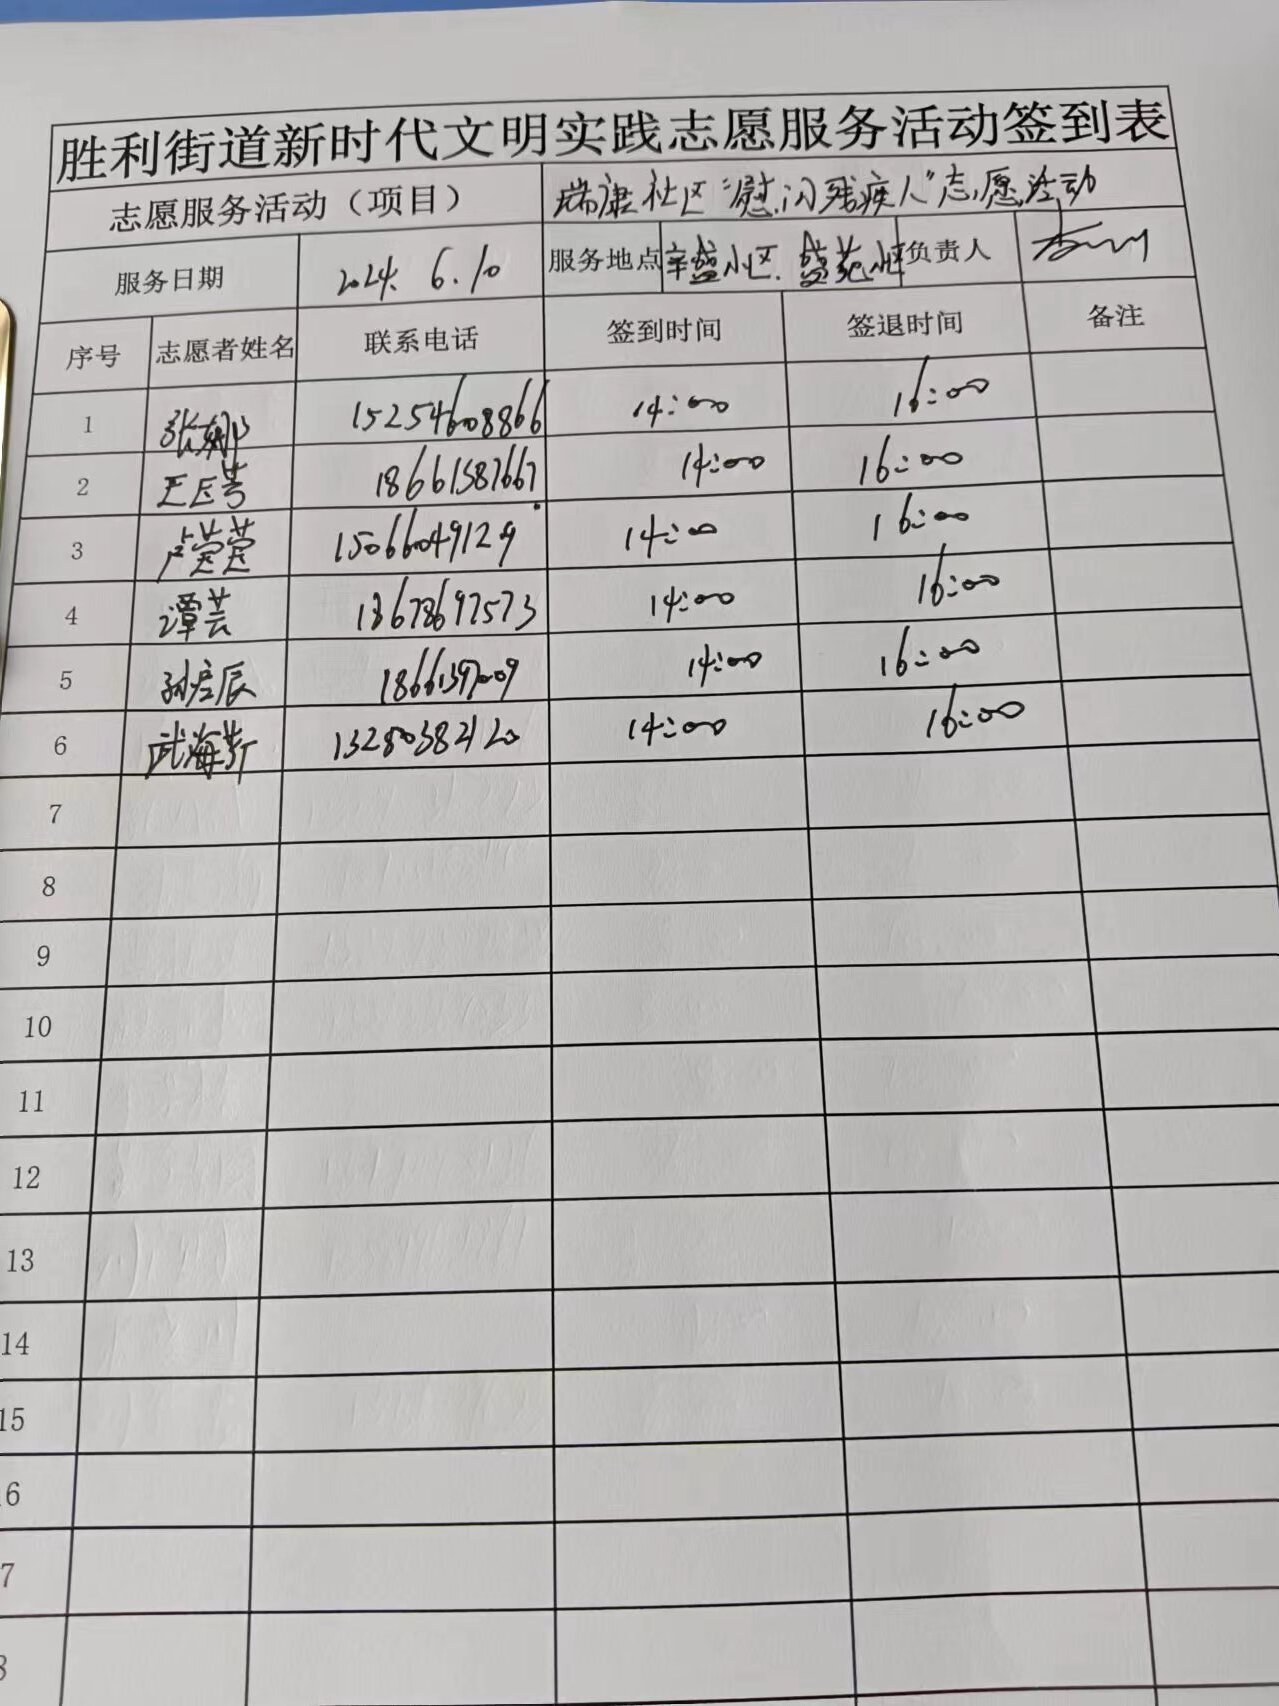 胜利街道新时代文明实践志愿服务活动签到表
志愿服务活动（项目） 瑞康社区“慰问残疾人”志愿活动
服务日期 2024. 6.10 服务地点 辛盛小区. 盛苑小区 负责人
序号 志愿者姓名 联系电话 签到时间 签退时间 备注
1 张娜 15254608866 14:00 16:00
2 18661387667 14:00 16:00
3 卢莹莹 15066049129 14:00 16:00
4 谭芸 13678697573 14:00 16:00
5 14:00 16:00
6 武海 13280382120 14:00 16:00
7
8
9
10
11
12
13
14
15
6
7
8